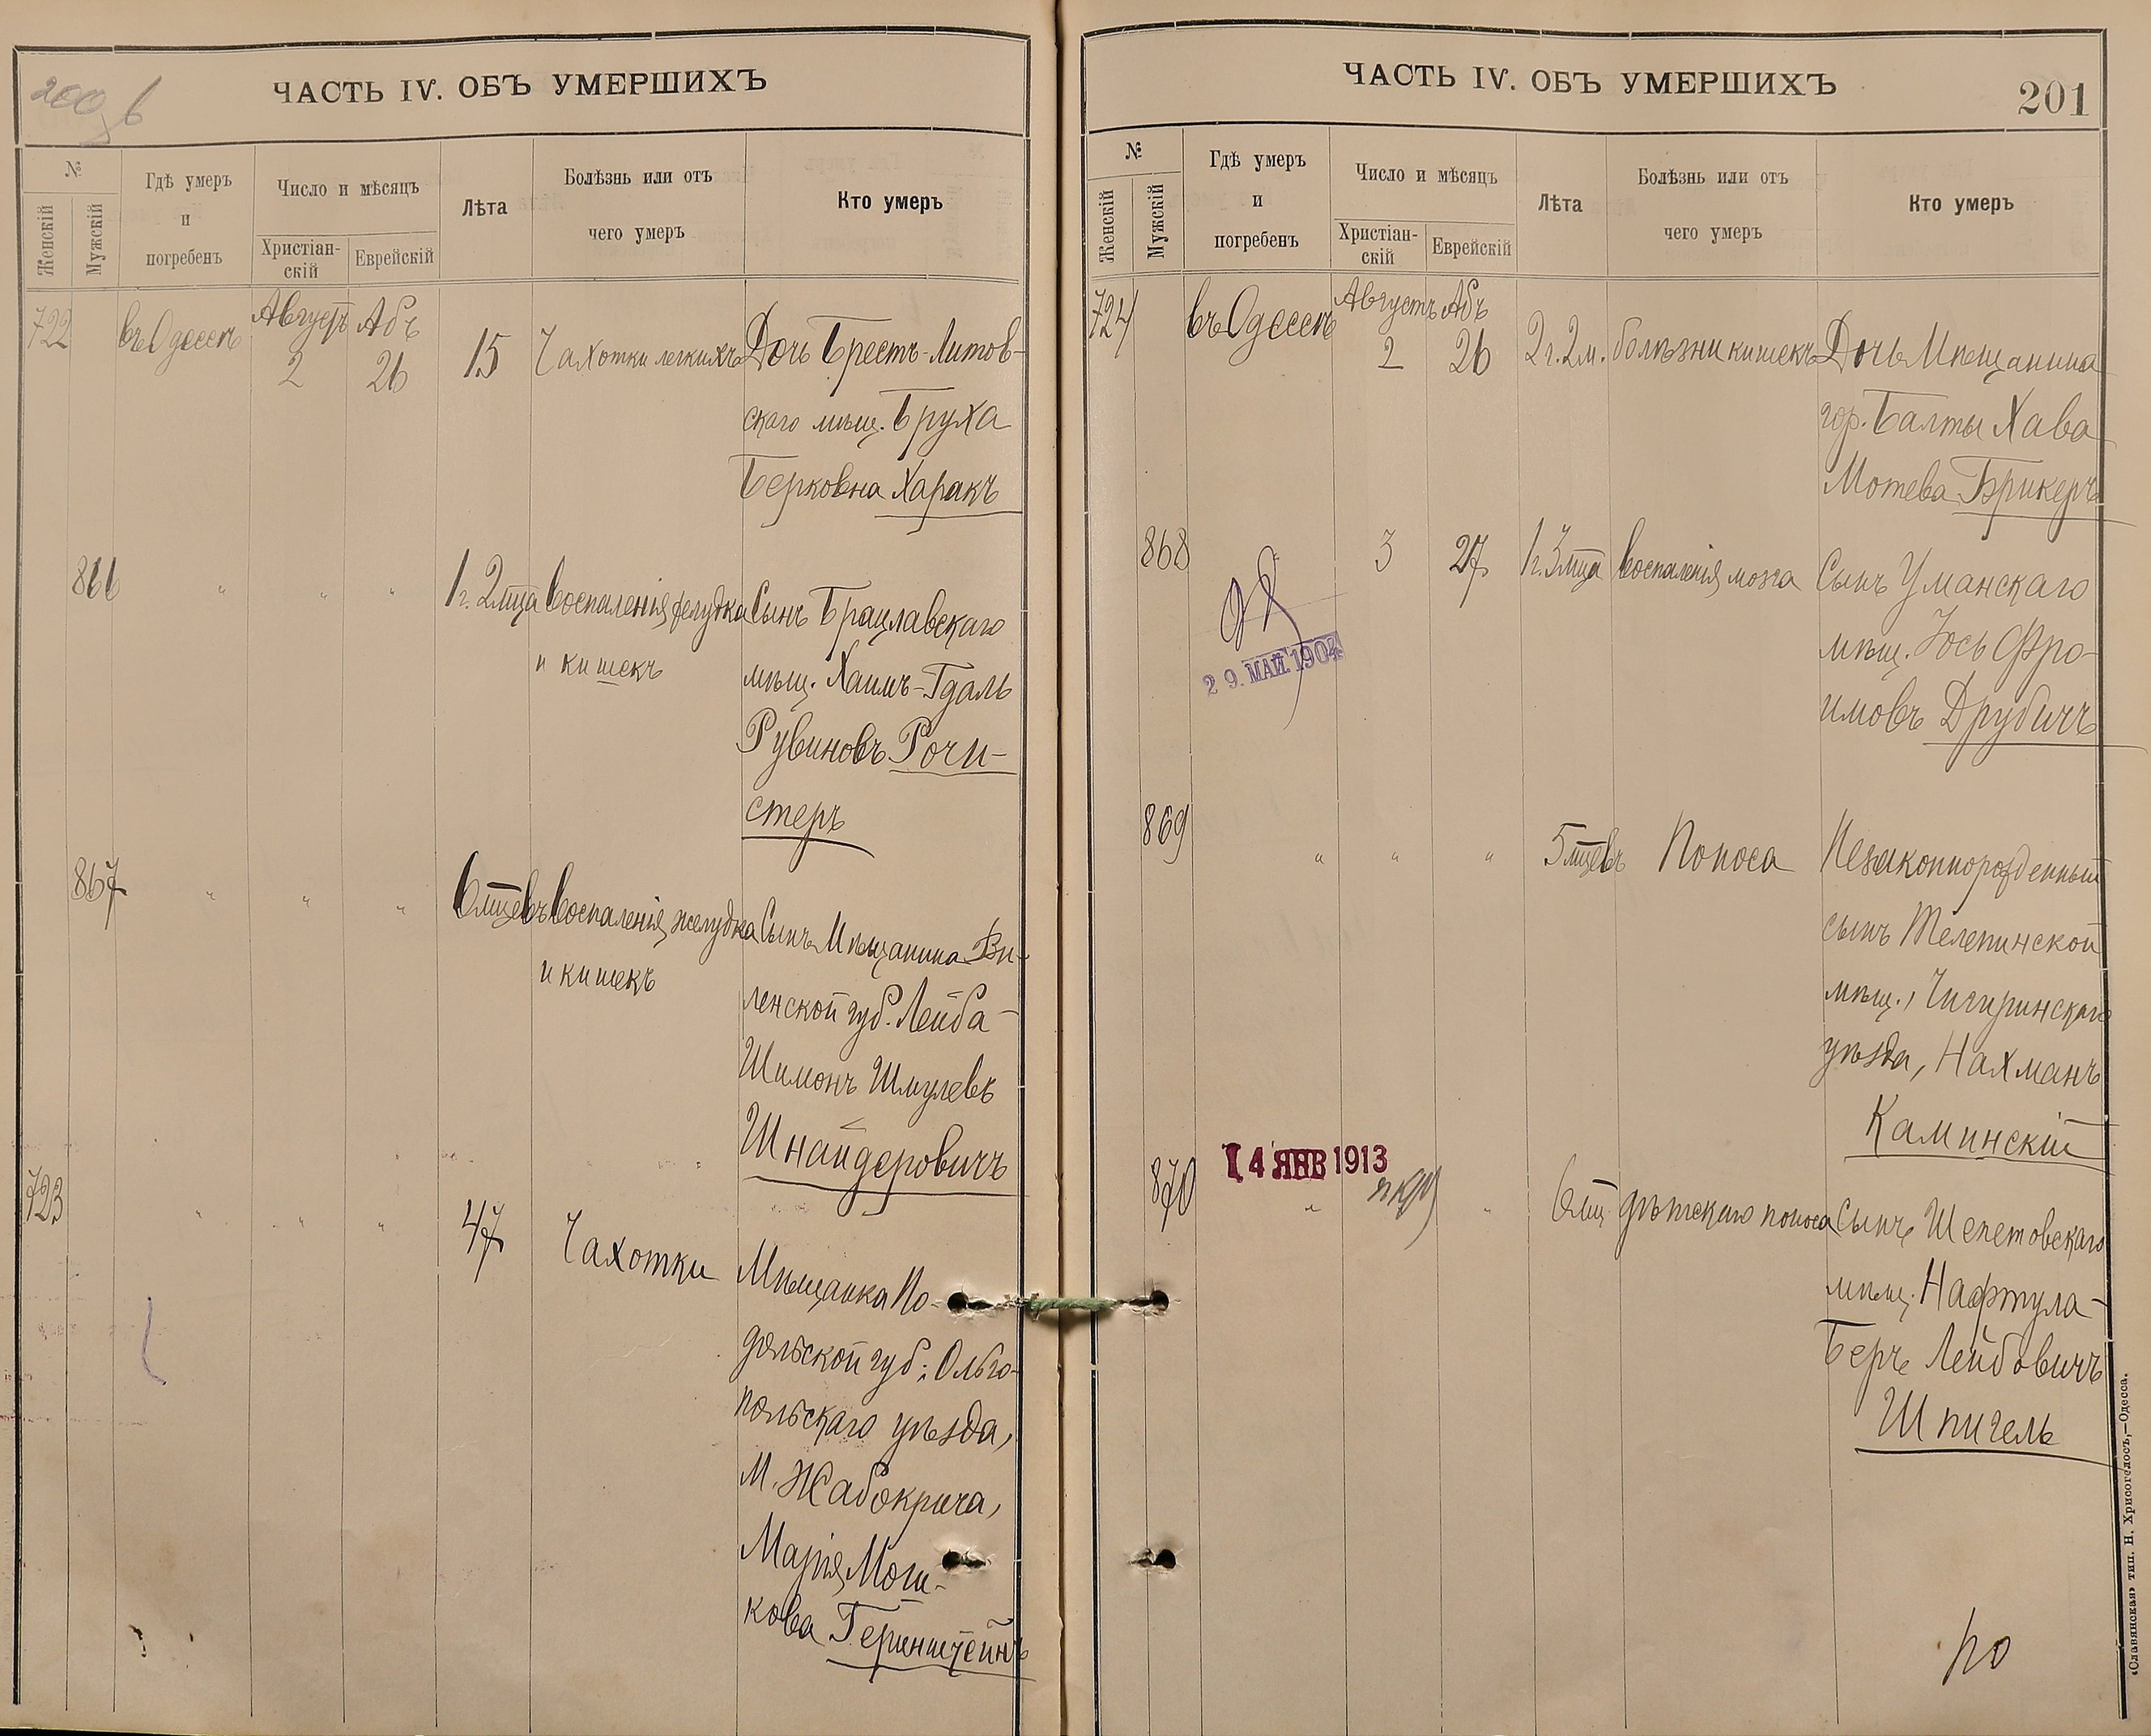 200 в
ЧАСТЬ IV. ОБЪ УМЕРШИХЪ
№
Женскій
Мужскій
Гдѣ умеръ
и
погребенъ
Число и мѣсяцъ
Христіан-
скій
Еврейскій
Лѣта
Болѣзнь или отъ
чего умеръ
Кто умеръ
722 въ Одессѣ Августъ 2 Абъ 26 15 Чахотки легкихъ Дочь Брестъ-Литов-
скаго мѣщ. Бруха
Берковна Харакъ
866 " " " 1 г. 2 мца воспаленія желудка Сынъ Брацлавскаго
и кишекъ мѣщ. Хаимъ-Гдаль
Рувиновъ Рочи-
стеръ
867 " " " 6 мцевъ воспаленія желудка Сынъ Мѣщанина Ви-
и кишекъ ленской губ. Лейба-
Шимонъ Шмулевъ
Шнайдеровичъ
723 " " " 47 Чахотки Мѣщанка По-
дольской губ. Ольго-
польскаго уѣзда,
М. Жабокрича,
Марія Мош-
кова Геринштейнъ
ЧАСТЬ IV. ОБЪ УМЕРШИХЪ
201
№
Женскій
Мужскій
Гдѣ умеръ
и
погребенъ
Число и мѣсяцъ
Христіан-
скій
Еврейскій
Лѣта
Болѣзнь или отъ
чего умеръ
Кто умеръ
724 въ Одессѣ Августъ 2 Абъ 26 2 г. 2 м. болѣзни кишекъ Дочь Мѣщанина
гор. Балты Хава
Мотева Брикеръ
868 3 27 1 г. 3 мца воспаленія мозга Сынъ Уманскаго
мѣщ. Іось Фро-
имовъ Друбичъ
29. МАЙ. 1904
869 " " " 5 мцевъ Поноса Незаконнорожденный
сынъ Телепинской
мѣщ., Чигиринскаго
уѣзда, Нахманъ
Каминскій
14 ЯНВ 1913
870 " " 6 мц дѣтскаго поноса Сынъ Шепетовскаго
мѣщ. Нафтула-
Беръ Лейбовичъ
Шпигель
«Славянская» тип. Н. Хрисогелосъ,—Одесса.